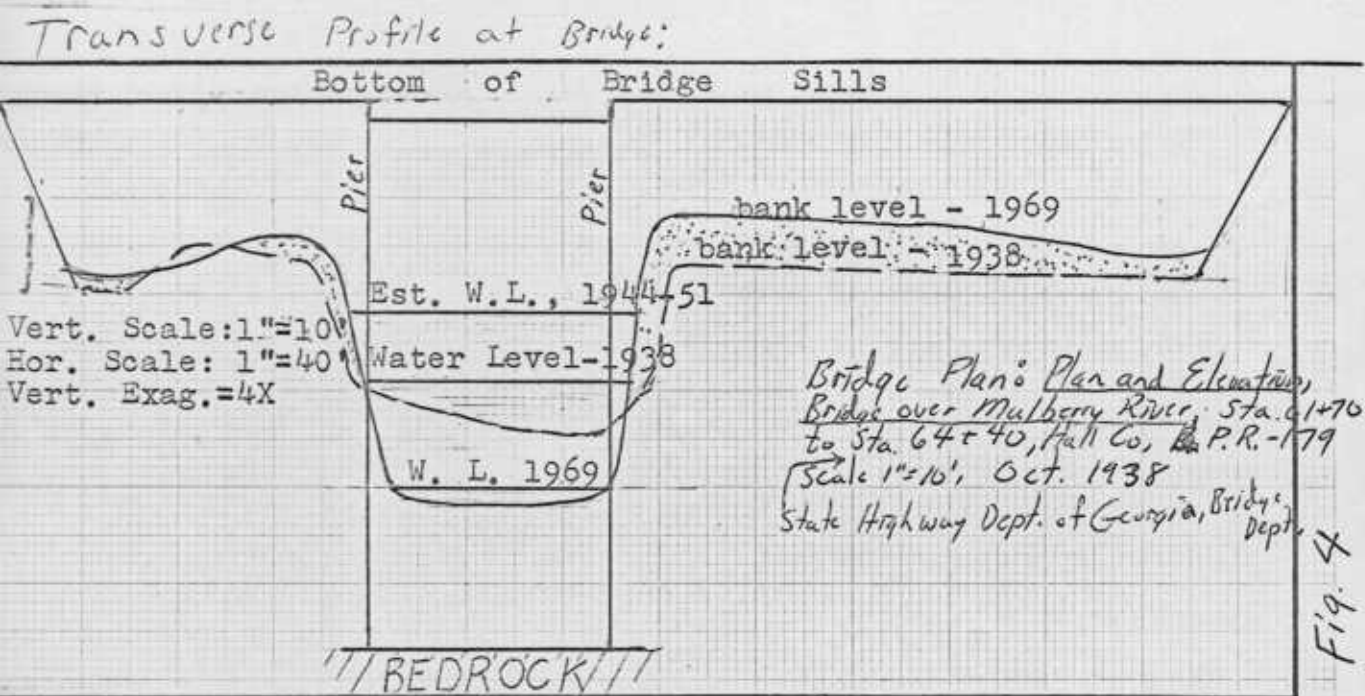 Transverse Profile at Bridge:
Bottom of Bridge Sills
Pier
Pier
bank level - 1969
bank level - 1938
Est. W.L., 1944-51
Vert. Scale:1"=10'
Hor. Scale: 1"=40'
Vert. Exag.=4X
Water Level-1938
W. L. 1969
Bridge Plan: Plan and Elevation,
Bridge over Mulberry River, Sta. 61+70
to Sta. 64+40, Hall Co, P.R.-179
Scale 1"=10', Oct. 1938
State Highway Dept. of Georgia, Bridge
Dept.
BEDROCK
Fig. 4